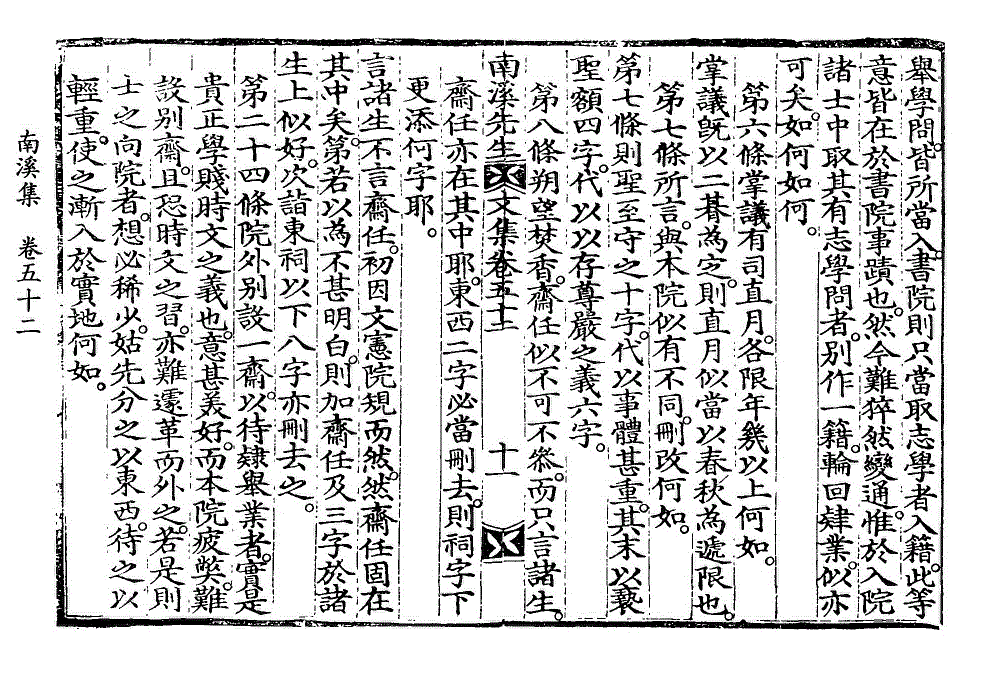 舉學問。皆所當入。書院則只當取志學者入籍。此等
意皆在於書院事蹟也。然今難猝然變通。惟於入院
諸士中取其有志學問者。別作一籍。輪回肄業。似亦
可矣。如何如何。
第六條掌議有司直月。各限年幾以上何如。
掌議旣以二朞爲定。則直月似當以春秋爲遞限也。
第七條所言。與本院似有不同。刪改何如。
第七條則聖至守之十字。代以事體甚重。其末以褻
聖額四字。代以以存尊嚴之義六字。
第八條朔望焚香。齋任似不可不參。而只言諸生。
南溪先生文集卷五十二 十一
齋任亦在其中耶。東西二字必當刪去。則祠字下
更添何字耶。
言諸生不言齋任。初因文憲院規而然。然齋任固在
其中矣。第若以爲不甚明白。則加齋任及三字於諸
生上似好。次詣東祠以下八字亦刪去之。
第二十四條院外別設一齋。以待隸擧業者。實是
貴正學賤時文之義也。意甚美好。而本院疲弊。難
設別齋。且恐時文之習。亦難遽革而外之。若是則
士之向院者。想必稀少。姑先分之以東西。待之以
輕重。使之漸入於實地何如。
南溪集 卷五十二